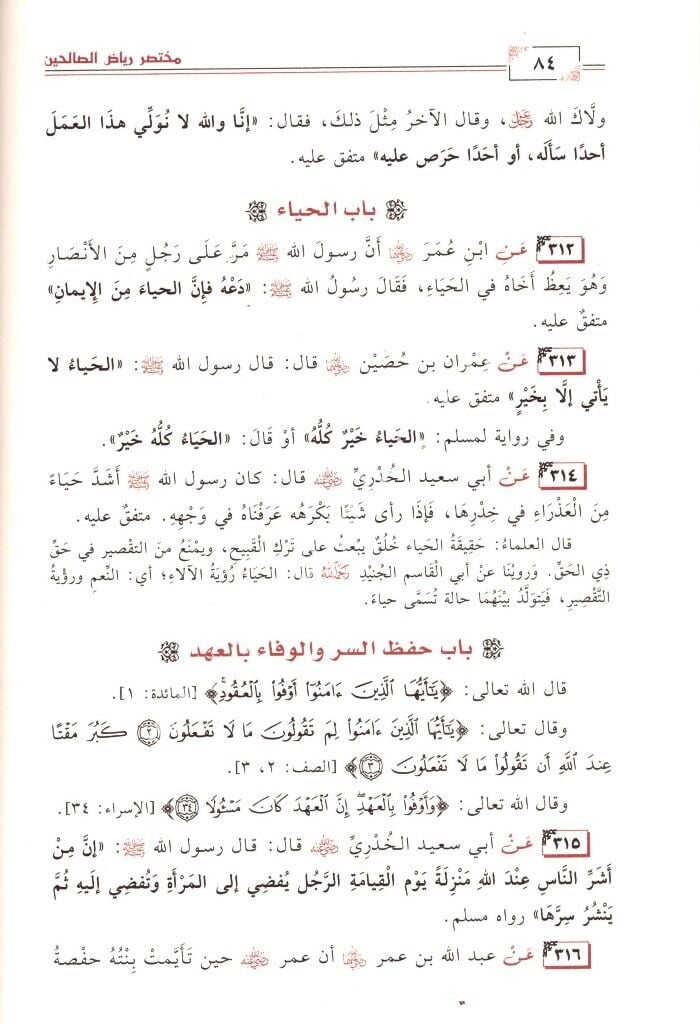 مختصر رياض الصالحين
٨٤
ولَّاكَ الله ﷿، وقال الآخرُ مِثْلَ ذلكَ، فقال: «إنَّا والله لا نُوَلِّي هذَا العَمَلَ
أحدًا سَأَلَه، أو أحَدًا حَرَص عليه» متفق عليه.
باب الحياء
٣١٢ عَنْ ابْنِ عُمَرَ ﵄ أَنَّ رسولَ الله ﷺ مَرَّ عَلَى رَجُلٍ مِنَ الأَنْصَارِ
وَهُوَ يَعِظُ أَخَاهُ في الحَيَاءِ، فَقَالَ رسُولُ الله ﷺ: «دَعْهُ فإِنَّ الحياءَ مِنَ الإيمانِ»
متفقٌ عليه.
٣١٣ عَنْ عِمْران بن حُصَيْن ﵄ قال: قال رسول الله ﷺ: «الحَياءُ لا
يَأْتي إلَّا بِخَيْرٍ» متفق عليه.
وفي رواية لمسلم: «الحياءُ خَيْرٌ كُلُّهُ» أوْ قَالَ: «الحَيَاءُ كُلُّهُ خَيْرٌ».
٣١٤ عَنْ أبي سعيد الخُدْرِيِّ ﵁ قال: كان رسول الله ﷺ أَشَدَّ حَيَاءً
مِنَ الْعَذْرَاءِ في خِدْرِهَا، فَإذَا رأى شَيْئًا يَكْرَهُه عَرَفْنَاهُ في وَجْهِهِ. متفقٌ عليه.
قال العلماءُ: حَقِيقَةُ الحياء خُلُقٌ يبْعثُ على تَرْكِ الْقَبِيحِ، ويمْنَعُ منَ التقْصير في حَقِّ
ذِي الحَقِّ. وَروينَا عنْ أبي القَاسم الجُنيْدِ ﵀ قال: الحَيَاءُ رُؤيَةُ الآلاءِ؛ أي: النِّعمِ ورؤْيةُ
التَّقْصِيرِ، فَيتوَلَّدُ بيْنَهُمَا حالة تُسَمَّى حياءً.
باب حفظ السر والوفاء بالعهد
قال الله تعالى: ﴿يَٰٓأَيُّهَا ٱلَّذِينَ ءَامَنُوٓاْ أَوۡفُواْ بِٱلۡعُقُودِۚ﴾ [المائدة: ١].
وقال تعالى: ﴿يَٰٓأَيُّهَا ٱلَّذِينَ ءَامَنُواْ لِمَ تَقُولُونَ مَا لَا تَفۡعَلُونَ ٢ كَبُرَ مَقۡتًا
عِندَ ٱللَّهِ أَن تَقُولُواْ مَا لَا تَفۡعَلُونَ ٣﴾ [الصف: ٢، ٣].
وقال الله تعالى: ﴿وَأَوۡفُواْ بِٱلۡعَهۡدِۖ إِنَّ ٱلۡعَهۡدَ كَانَ مَسۡـُٔولٗا ٣٤﴾ [الإسراء: ٣٤].
٣١٥ عَنْ أبي سعيد الخُدْرِيِّ ﵁ قال: قال رسول الله ﷺ: «إنَّ مِنْ
أَشَرِّ النَّاسِ عِنْدَ اللهِ مَنْزِلَةً يَوْم القِيامَةِ الرَّجُل يُفضِي إلى المَرْأَةِ وَتُفضِي إليهِ ثُمَّ
يَنْشُرُ سِرَّهَا» رواه مسلم.
٣١٦ عَنْ عبد الله بن عمر ﵄ أن عمر ﵁ حين تَأَيَّمت بِنْتُهُ حفْصةُ